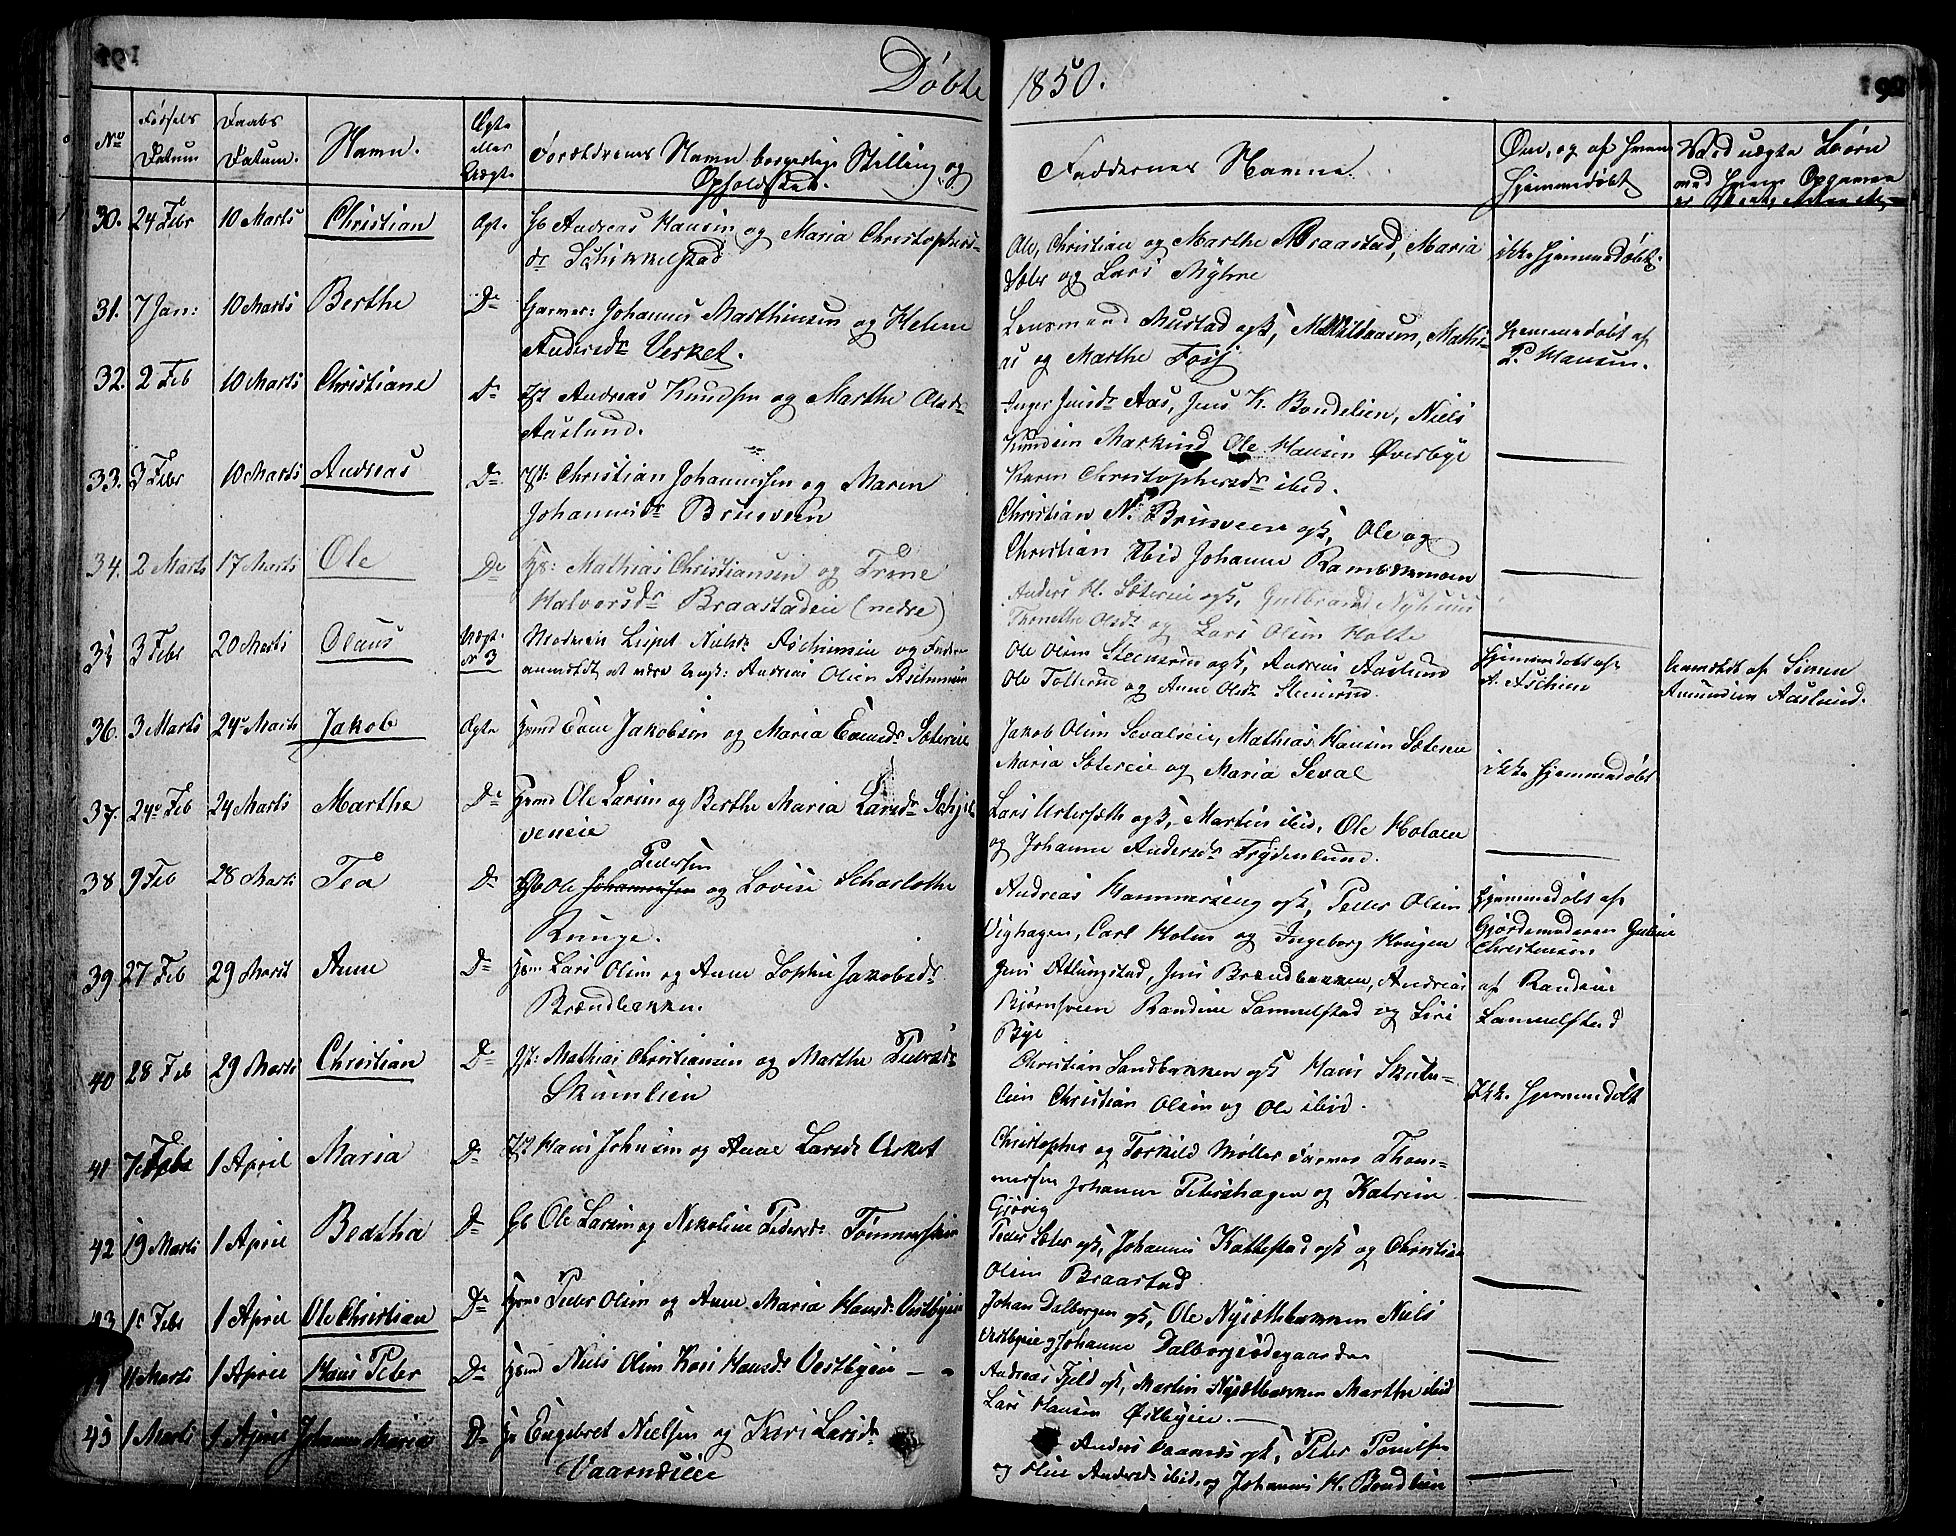 191
Døbte
1850.
192
No
Fødsels Datum
Daabs Datum.
Navn.
Ægte eller Uægte
Forældrenes Navn borgerlige Stilling og Opholdsted.
Faddernes Navne.
Om, og af hvem Hjemmedøbt
Ved uægte Børn
med hvem
30. 24 Febr 10 Marts Christian Ægte Gb Andreas Hansen og Maria Christophers-
dr Schikkelstad
Ole, Christian og Marthe Braastad, Maria
Sæter og Lars Myhre
ikke hjemmedøbt.
31. 7 Jan: 10 Marts Berthe Do Garver: Johannes Marthinsen og Helene
Andersdr Verket.
Lensmand Mustad og K, Mathi-
as og Marthe Foss
hjemmedøbt af
P. Hansen.
32. 2 Feb 10 Marts Christiane Do Andreas Knudsen og Marthe Olsdr
Aaslund.
Inger Jensdr Aas, Jens K. Bondelien, Niels
Knudsen Ole Hansen Øverbye
Karen Christophersdr ibid.
33. 3 Febr 10 Marts Andreas Do Christian Johannessen og Maren
Johannesdr Brusveen
Christian N. Brusveen og K, Ole og
Christian ibid Johanne
34. 2 Marts 17 Marts Ole Do Mathias Christiansen og Trine
Halvorsdr Braastadeie (nedre)
Anders H. Sætereie og K, Gulbrand Nyhuus
Thonette Olsdr og Lars Olsen Holte
35 3 Febr 20 Marts Olaus Uægte No 3 Moderen Lispet Nielsdr Aschimeie og Faderen
anmeldt at være Ungk: Andreas Olsen Aschimeie
Ole Olsen Steensrud og K, Andreas Aaslund
Ole Totterud og Anne Olsdr Steensrud.
Hjemmedøbt af
A. Aschim
af Simen
Amundsen Aaslund.
36. 3 Marts 24 Marts Jakob Ægte Even Jakobsen og Maria Evensdr Sætereie
Jakob Olsen Sevalseie, Mathias Hansen Sætereie
Maria Sætereie og Maria Seval
ikke hjemmedøbt
37. 24 Feb 24 Marts Marthe Do Ole Larsen og Berthe Maria Larsdr
veneie
Lars og K, Martin ibid, Ole
og Johanne Andersdr Frydenlund.
38 9 Feb 28 Marts Tea Do Gb Ole Johannessen Pedersen og Lovise Scharlothe
Runge.
Andreas Hammerseng og K, Peder Olsen
Vighagen, Carl Holm og Ingeborg Haugen
Hjemmedøbt af
Gjordemoderen Guline
Christensen
39 27 Feb 29 Marts Anne Do Lars Olsen og Anne Sophie Jakobsdr
Brændbakken.
Jens Alungstad, Jens Brændbakken, Andreas
Bjørnsveen Randine Sammelstad og Siri
Bye
af Randine
Sammelstad
40 28 Feb 29 Marts Christian Do Mathias Christiansen og Marthe Pedersdr
Skumlien
Christian Sandbakken og K Hans Skum-
lien Christian Olsen og Ole ibid.
Ikke hjemmedøbt
41 7 Febr 1 April Maria Do Hans Johnsen og Anne Larsdr
Christopher og Torkild Møller Thom-
mesen Johanne Petershagen og Katrine
Gjøvig
42 19 Marts 1 April Beatha Do Gb Ole Larsen og Nikoline Pedersdr
Peder Sæter og K, Johannes Kallestad og K og Christian
Olsen Braastad
43 15 Febr 1 April Ole Christian Do Peder Olsen og Anne Maria Hansdr Vestbyeie
Johan Dalborgen og K, Ole Nysethbakken Niels
Vestbyeie og Johanne Dalborgsødegaarden
44 11 Marts 1 April Hans Peter Do Niels Olsen Kari Hansdr Vestbyeie
Andreas Fjeld og K, Martin Nysethbakken Marthe ibid
Lars Hansen Østbyeie.
45 1 Marts 1 April Johanne Maria Do Engebret Nielsen og Kari Larsdr
Vaarnæseie
Anders Vaarnæs og K, Peter Poulsen
og Oline Andersdr ibid, og Johannes H. Bondlien